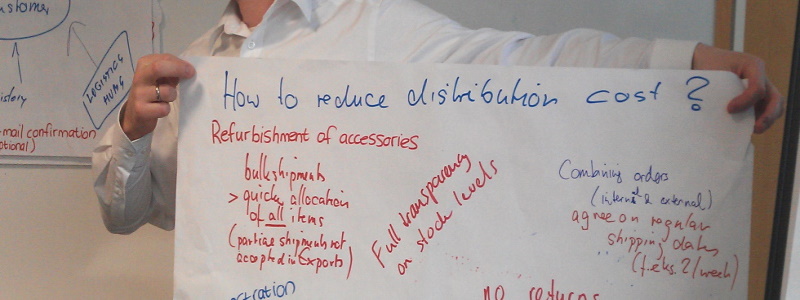 How to reduce distribution cost ?
Refurbishment of accessories
bulkshipments
> quicker allocation
of all items
(partial shipments not
accepted in Exports)
Full transparency
on stock levels
Combining orders
(internal & external)
agree on regular
shipping dates
(f.eks. 2/week)
no returns
LOGISTICS
-mail confirmation